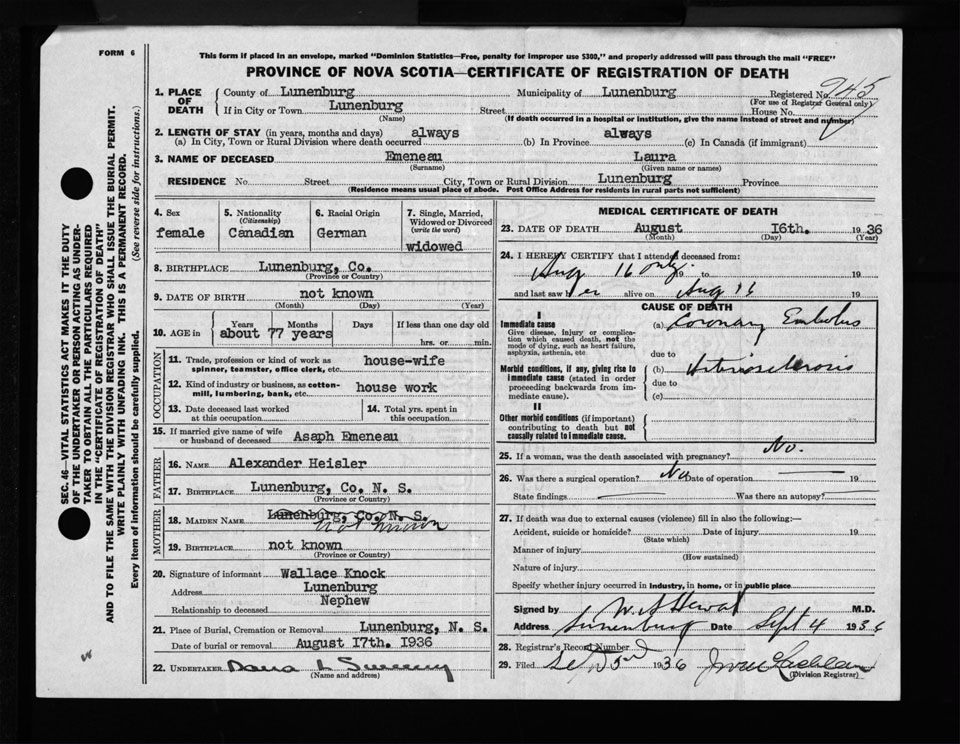 FORM 6
This form if placed in an envelope, marked "Dominion Statistics—Free, penalty for improper use $300," and properly addressed will pass through the mail "FREE"
PROVINCE OF NOVA SCOTIA—CERTIFICATE OF REGISTRATION OF DEATH
SEC. 46—VITAL STATISTICS ACT MAKES IT THE DUTY
OF THE UNDERTAKER OR PERSON ACTING AS UNDER-
TAKER TO OBTAIN ALL THE PARTICULARS REQUIRED
IN THE "CERTIFICATE OF REGISTRATION OF DEATH"
AND TO FILE THE SAME WITH THE DIVISION REGISTRAR WHO SHALL ISSUE THE BURIAL PERMIT.
WRITE PLAINLY WITH UNFADING INK. THIS IS A PERMANENT RECORD.
Every item of information should be carefully supplied. (See reverse side for instructions.)
1. PLACE OF DEATH County of Lunenburg Municipality of Lunenburg Registered No. 945
(For use of Registrar General only)
If in City or Town Lunenburg Street House No.
(Name) (If death occurred in a hospital or institution, give the name instead of street and number)
2. LENGTH OF STAY (in years, months and days) always always
(a) In City, Town or Rural Division where death occurred (b) In Province (c) In Canada (if immigrant)
3. NAME OF DECEASED Emeneau Laura
(Surname) (Given name or names)
RESIDENCE No. Street City, Town or Rural Division Lunenburg Province
(Residence means usual place of abode. Post Office Address for residents in rural parts not sufficient)
4. Sex female
5. Nationality (Citizenship) Canadian
6. Racial Origin German
7. Single, Married, Widowed or Divorced (write the word) widowed
8. BIRTHPLACE Lunenburg, Co.
(Province or Country)
9. DATE OF BIRTH not known
(Month) (Day) (Year)
10. AGE in Years Months Days If less than one day old
about 77 years hrs. or min.
OCCUPATION
11. Trade, profession or kind of work as spinner, teamster, office clerk, etc. house-wife
12. Kind of industry or business, as cotton-mill, lumbering, bank, etc. house work
13. Date deceased last worked at this occupation
14. Total yrs. spent in this occupation.
15. If married give name of wife or husband of deceased Asaph Emeneau
FATHER
16. NAME Alexander Heisler
17. BIRTHPLACE Lunenburg, Co. N. S.
(Province or Country)
MOTHER
18. MAIDEN NAME Lunenburg, Co. N. S.
not known
19. BIRTHPLACE not known
(Province or Country)
20. Signature of informant Wallace Knock
Address Lunenburg
Relationship to deceased Nephew
21. Place of Burial, Cremation or Removal Lunenburg, N. S.
Date of burial or removal August 17th. 1936
22. UNDERTAKER Dana L Sweeny
(Name and address)
MEDICAL CERTIFICATE OF DEATH
23. DATE OF DEATH August 16th. 1936
(Month) (Day) (Year)
24. I HEREBY CERTIFY that I attended deceased from:
Aug 16 only 19 to 19
and last saw her alive on Aug 16 19
CAUSE OF DEATH
I
Immediate cause
Give disease, injury or complication which caused death, not the mode of dying, such as heart failure, asphyxia, asthenia, etc
(a) Coronary Embolus
due to
Morbid conditions, if any, giving rise to immediate cause (stated in order proceeding backwards from immediate cause).
(b) Arteriosclerosis
due to
(c)
II
Other morbid conditions (if important) contributing to death but not causally related to immediate cause.
25. If a woman, was the death associated with pregnancy? No.
26. Was there a surgical operation? No Date of operation 19
State findings Was there an autopsy?
27. If death was due to external causes (violence) fill in also the following:—
Accident, suicide or homicide? Date of injury 19
(State which)
Manner of injury
(How sustained)
Nature of injury
Specify whether injury occurred in industry, in home, or in public place
Signed by M.D.
Address Lunenburg Date Sept 4 1936
28. Registrar's Record Number
29. Filed 1936
(Division Registrar)